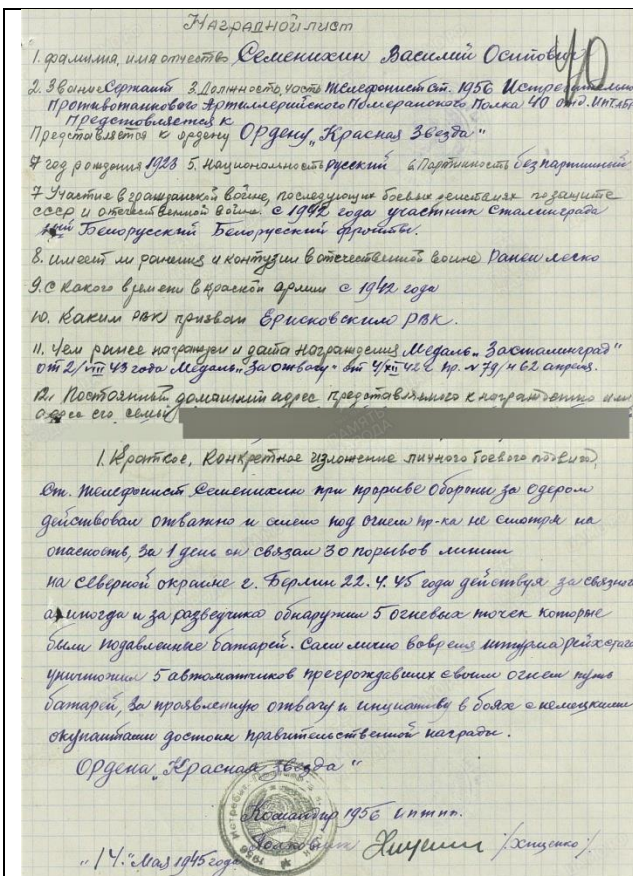 Наградной лист
40
1. фамилия, имя отчество Семенихин Василий Осипович
2. Звание Сержант 3. Должность, часть Телефонист ст. 1956 Истребительно
Противотанкового Артиллерийского Померанского Полка 40 отд. ИПТАБР
Представляется к
Представляется к ордену Ордену „Красная Звезда"
4 год рождения 1923 5. Национальность русский 6. Партийность безпартийный
7 Участие в гражданской войне, последующих боевых действиях по защите
СССР и отечественной войне. с 1942 года участник Сталинграда
Белорусский Белорусский фронты.
8. имеет ли ранения и контузии в отечественной войне Ранен легко
9. С какого времени в красной армии с 1942 года
10. Каким РВК призван РВК.
11. Чем ранее награжден и дата награждения Медаль „За сталинград"
от 2/VIII 43 года Медаль „За отвагу" от 4/XII 42 г. пр. №79/н 62 армия.
12. Постоянный домашний адрес представляемого к награждению или
адрес его семьи
1. Краткое, Конкретное изложение личного боевого подвига,
Ст. телефонист Семенихин при прорыве обороны за одером
действовал отважно и смело под огнем пр-ка не смотря на
опасность, За 1 день он связал 30 порывов линии
на северной окраине г. Берлин 22.4.45 года действуя за связного
а иногда и за разведчика обнаружил 5 огневых точек которые
были подавленны батарей. Сам лично вовремя штурма рейхстага
уничтожил 5 автоматчиков преграждавших своим огнем путь
батарей, За проявленную отвагу и инциативу в боях с немецкими
окупантами достоин правительственной награды.
Ордена „Красная Звезда"
Командир 1956 иптап.
Полковник /Хищенко/
„14" Мая 1945 года